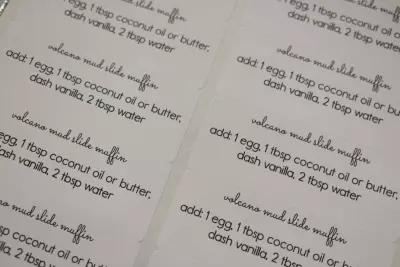 1 egg, 1 tbsp coconut oil or butter,
dash vanilla, 2 tbsp water
volcano mud slide muffin
add: 1 egg, 1 tbsp coconut oil or butter,
dash vanilla, 2 tbsp water
volcano mud slide muffin
1 egg, 1 tbsp coconut oil or butter,
dash vanilla, 2 tbsp water
volcano mud slide muffin
1 tbsp coconut oil or butter,
2 tbsp water
1 egg, 1 tbsp coconut oil or
dash vanilla, 2 tbsp water
volcano mud slide muffin
add: 1 egg, 1 tbsp coconut oil or butter,
dash vanilla, 2 tbsp water
volcano mud slide muffin
add: 1 egg, 1 tbsp coconut oil or butter,
dash vanilla, 2 tbsp water
volcano mud slide muffin
add: 1 egg, 1 tbsp coconut oil or
dash vanilla, 2 tbsp water